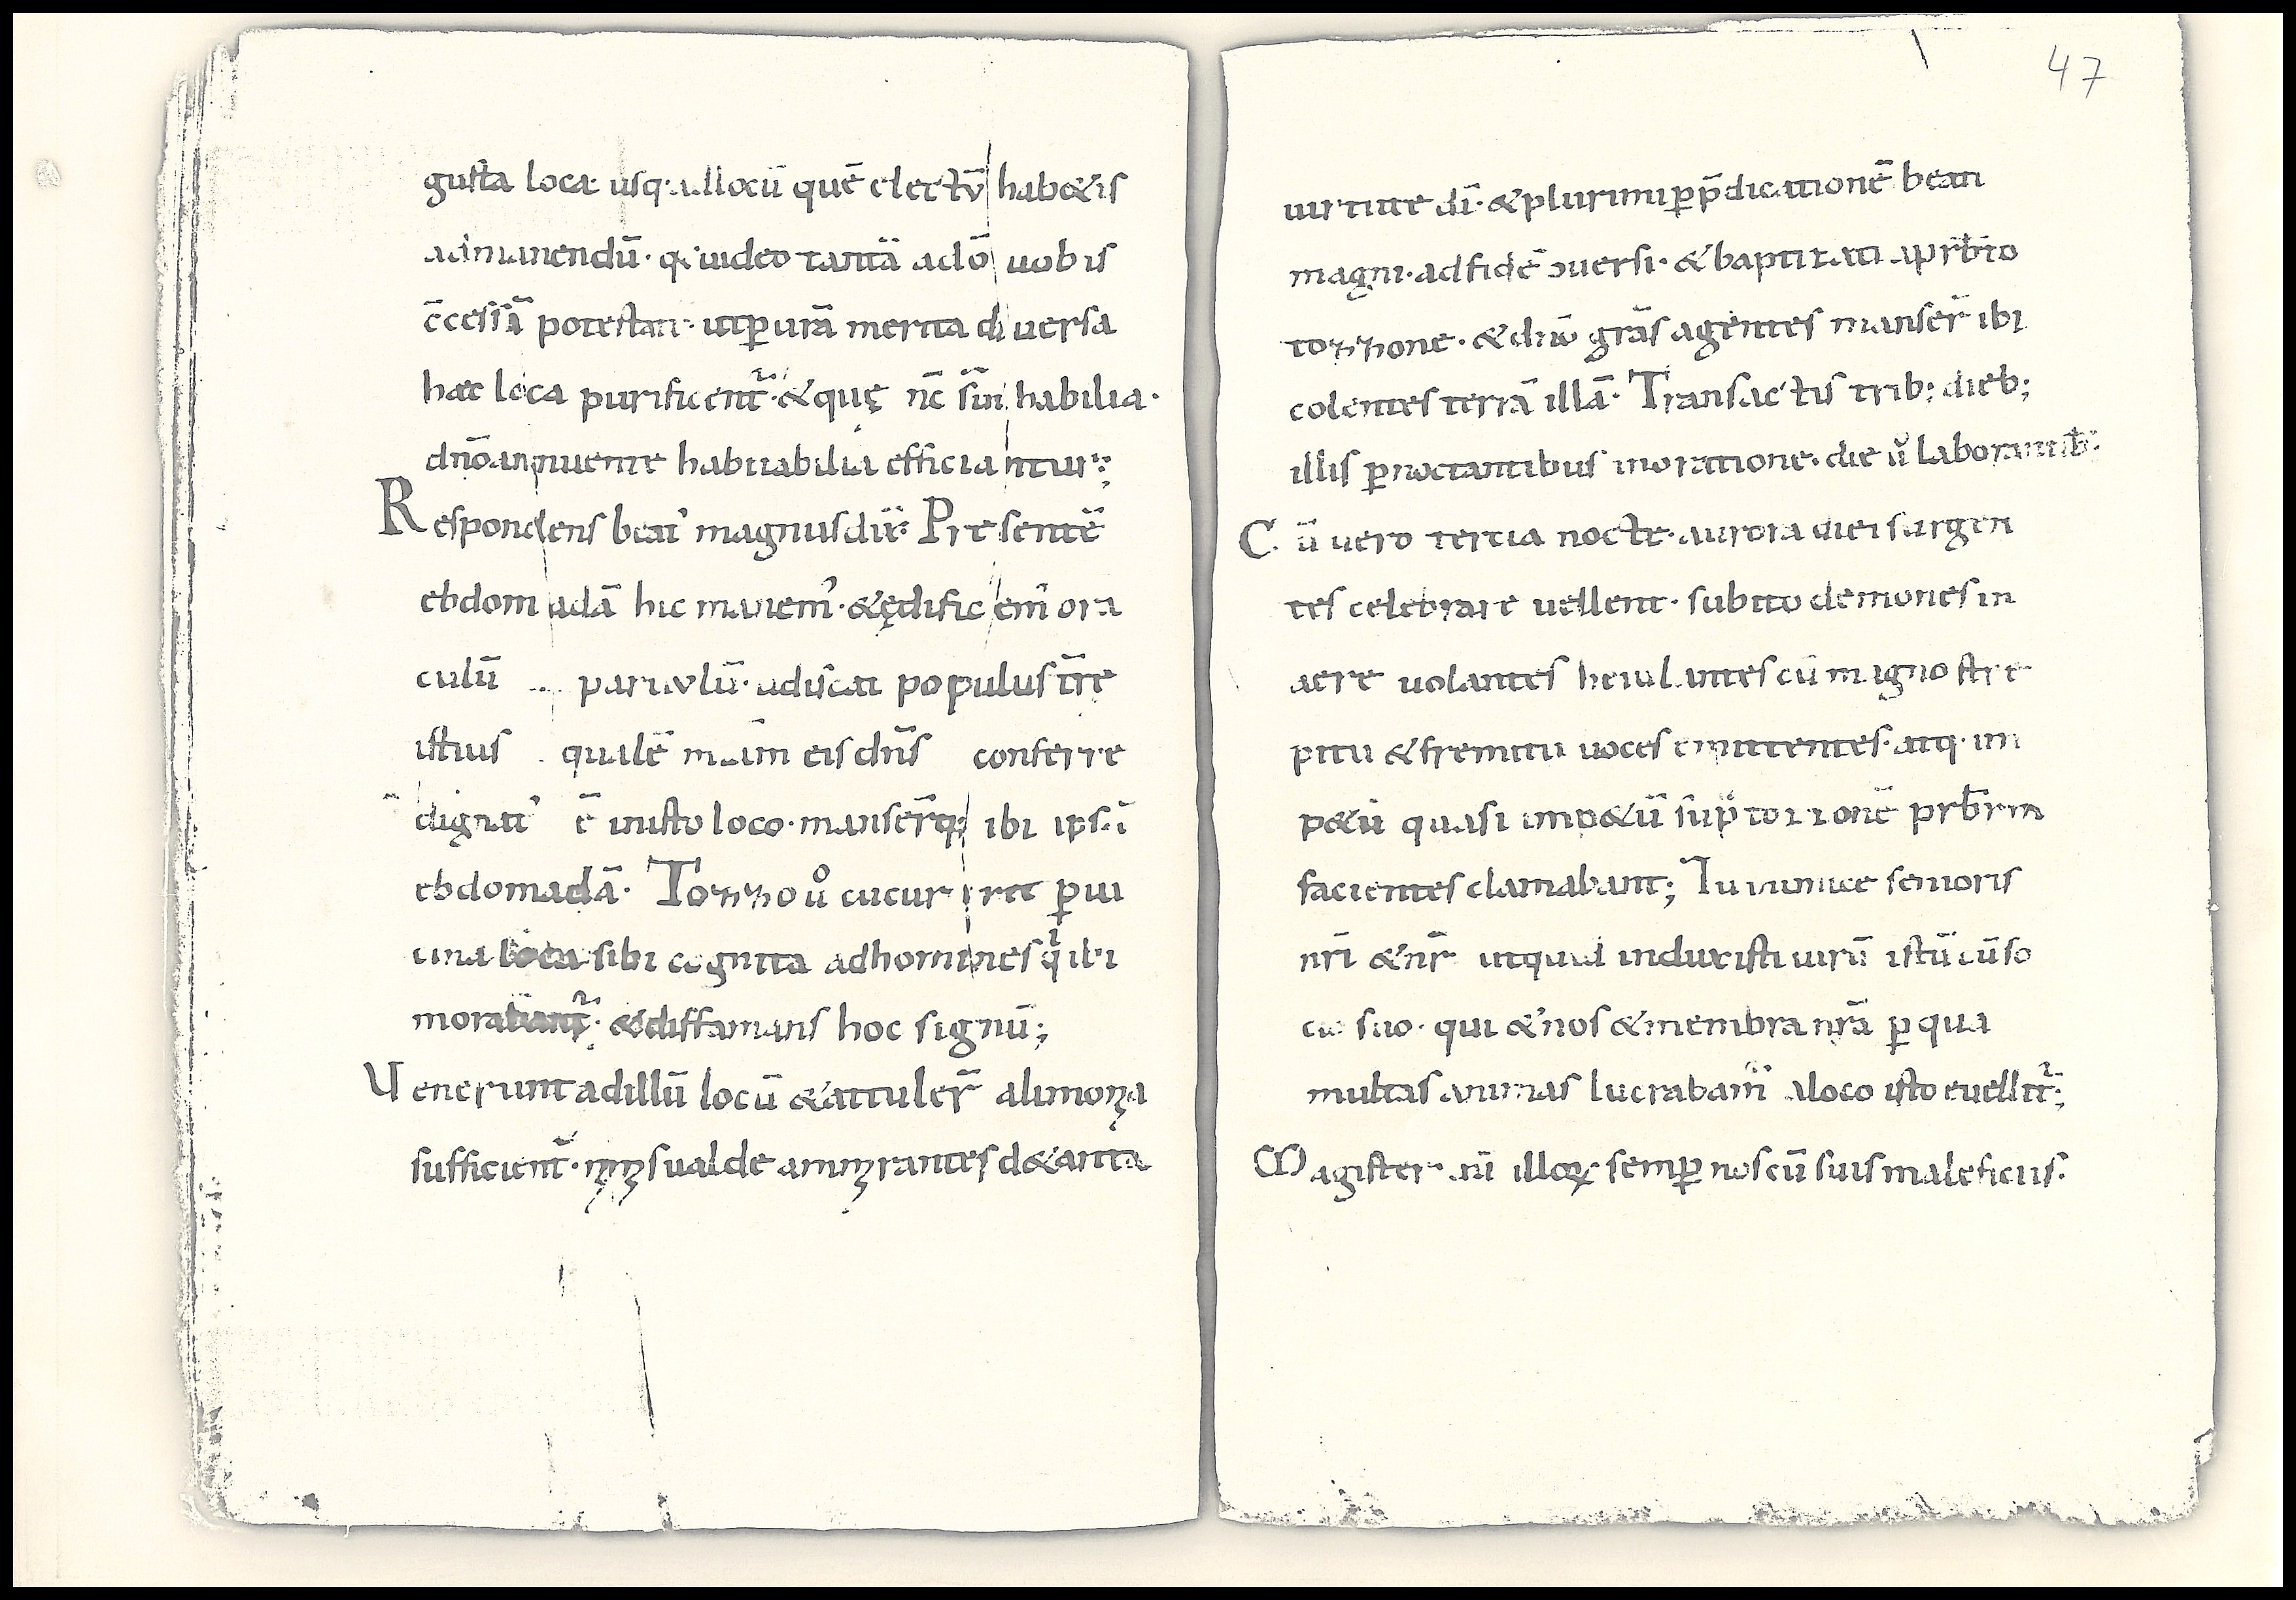 gusta loca usq· ad locū quē electū habetis
admanendū· qa uideo tantā adō uobis
c̄cessā potestatē· ut p̱ urā merita diuersa
hæc loca purificent᷑· & quę nc̄ sūt habilia·
dnō annuente habitabilia efficiantur;
Respondens beat' magnus dix̄· Presentē
ebdomadā hic manem'· & ędificem' ora
culū paruulū· ut discat populus tr̄e
istius qualē mīam eis dn̄s conferre
dignat' ē in isto loco· manser̄q; ibi ipsā
ebdomadā· Tozzo ů cucurrit p̱ ui
cina loca sibi cognita ad homines q̇ ibi
morabant᷑· & diffamans hoc signū;
Venerunt ad illū locū & attuler̄ alimonia
sufficient̄· nimis ualde ammirantes de tanta
47
uirtute dī· & plurimi p̱ p̄dicationē beati
magni· ad fidē ɔuersi· & baptizati a prb̄ro
tozzone· & dnō grās agentes manser̄ ibi
colentes terrā illā· Transactis trib; dieb;
illis p̱noctantibus in oratione· die ů laborantib;
Cū uero tertia nocte· aurora diei surgen
tes celebrare uellent· subito demones in
aere uolantes heiulantes cū magno stre
pitu & fremitu uoces emittentes· atq· im
petū quasi impetū sup̄ tozzonē prb̄rm
facientes clamabant; Tu inimice senioris
nr̄i & nr̄ ut quid induxisti uirū istū cū so
cio suo· qui & nos & membra nr̄a p̱ qua
multas animas lucrabam̄ a loco isto euellit᷑;
Magister illoꝝ semp̱ nos cū suis maleficiis·